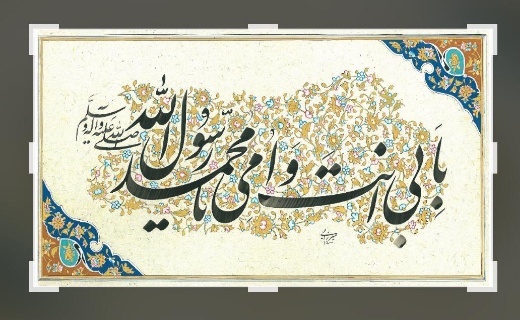 بِاَبی انت وَ اُمی یا محمد رسُول الله
صلی الله علیه و آله و سلم